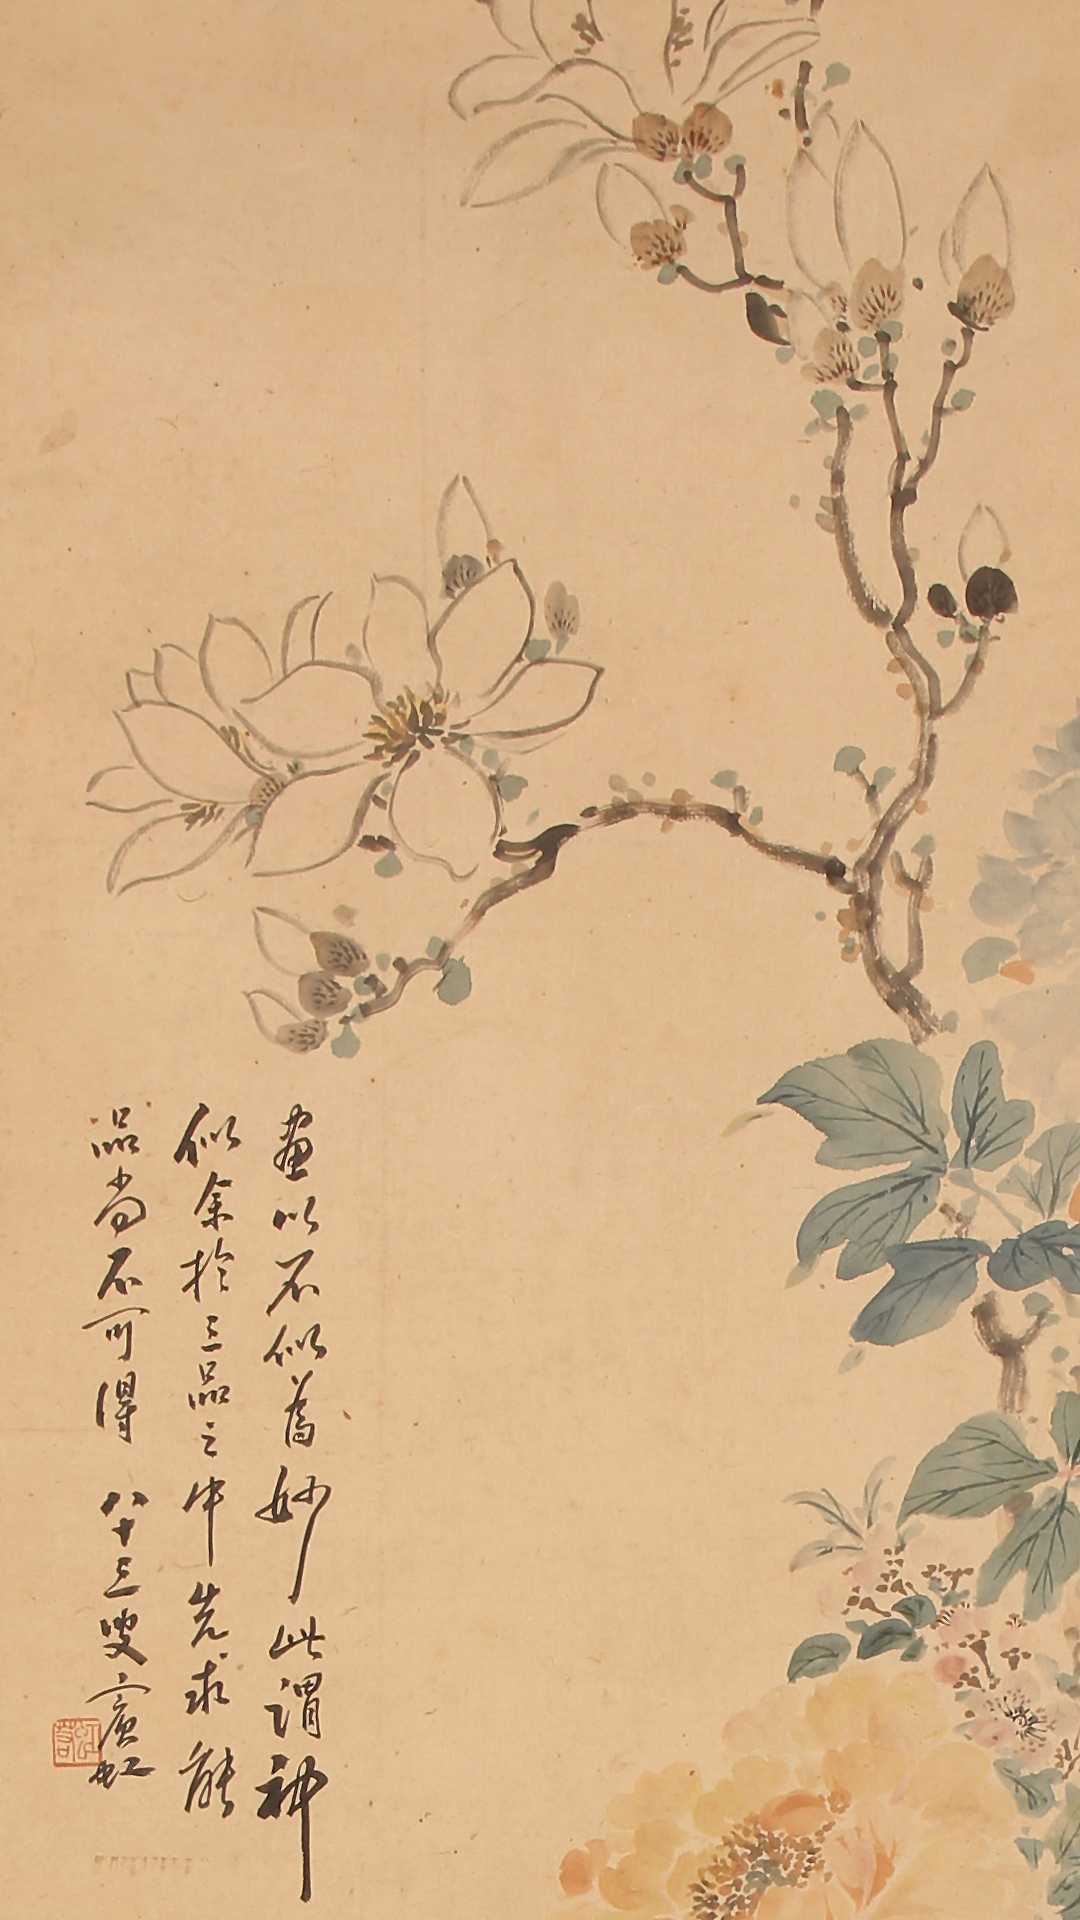 畫以不似舊妙此謂神
似余於三品之中先求能
品尚不可得 八十三叟賓虹